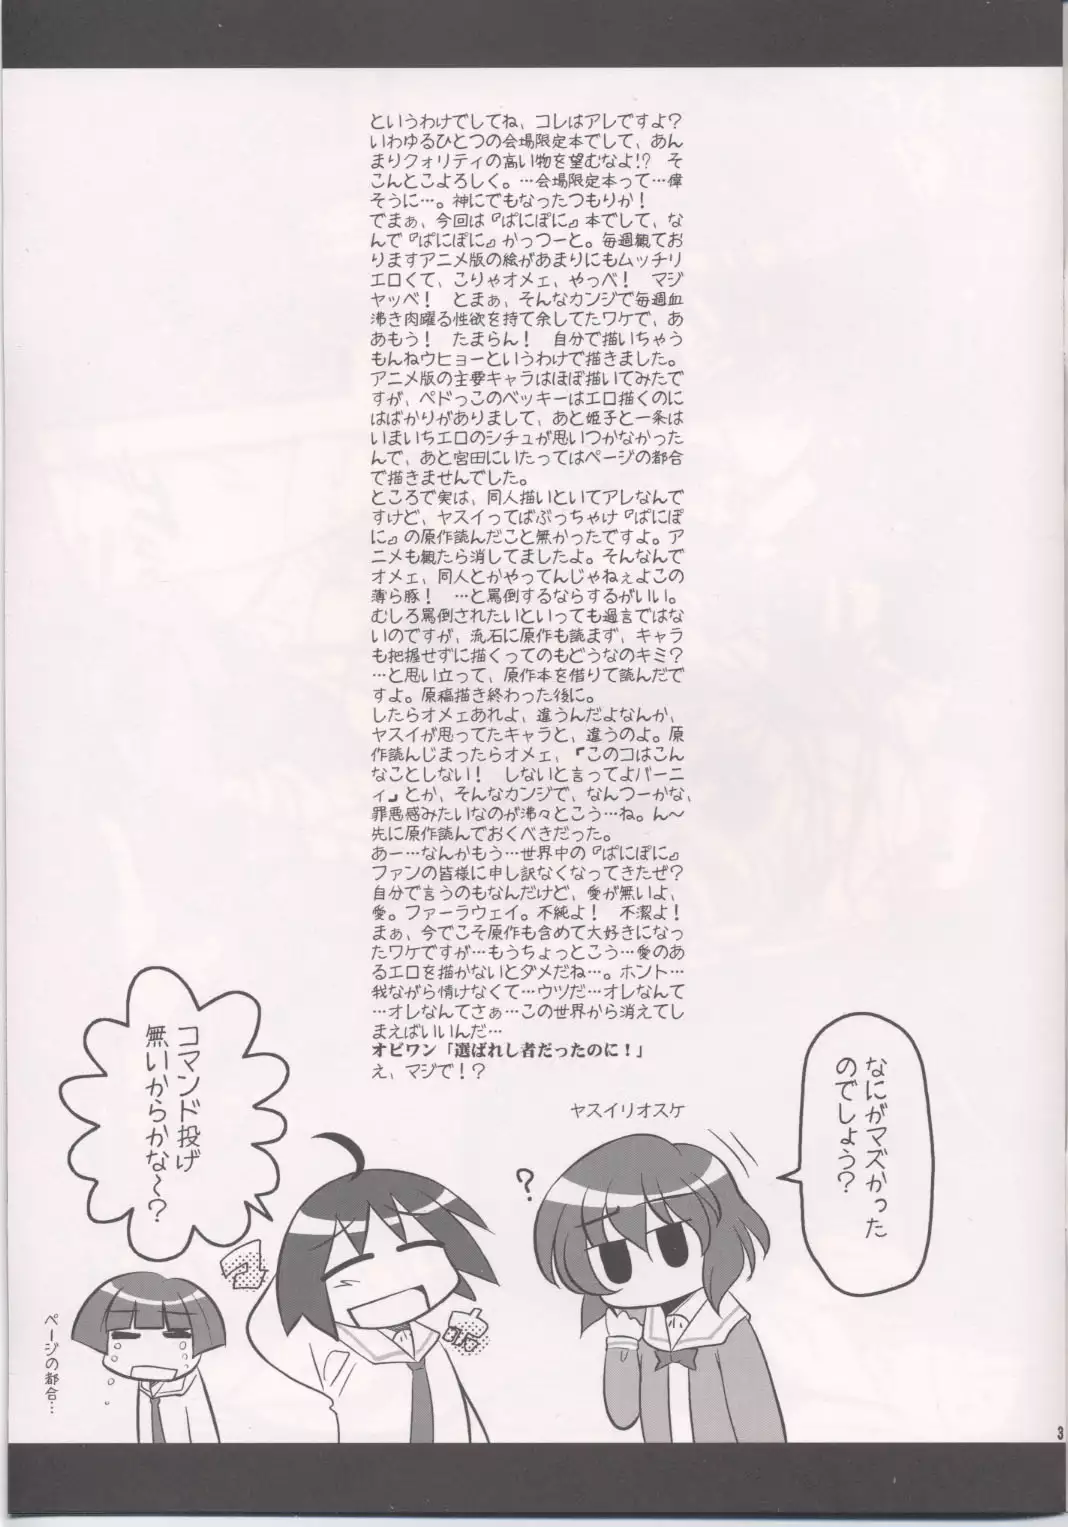 というわけでしてね、コレはアレですよ?
いわゆるひとつの会場限定本でして、あん
まりクォリティの高い物を望むなよ!? そ
こんとこよろしく。…会場限定本って…偉
そうに…。神にでもなったつもりか!
でまぁ、今回は『ぱにぽに』本でして、な
んで『ぱにぽに』かっつーと。毎週観てお
りますアニメ版の絵があまりにもムッチリ
エロくて、こりゃオメェ、やっべ! マジ
ヤッベ! とまぁ、そんなカンジで毎週血
沸き肉躍る性欲を持て余してたワケで、あ
あもう! たまらん! 自分で描いちゃう
もんねウヒョーというわけで描きました。
アニメ版の主要キャラはほぼ描いてみたで
すが、ペドっこのベッキーはエロ描くのに
はばかりがありまして、あと姫子と一条は
いまいちエロのシチュが思いつかなかった
んで、あと宮田にいたってはページの都合
で描きませんでした。
ところで実は、同人描いといてアレなんで
すけど、ヤスイってばぶっちゃけ『ぱにぽ
に』の原作読んだこと無かったですよ。ア
ニメも観たら消してましたよ。そんなんで
オメェ、同人とかやってんじゃねぇよこの
薄ら豚! …と罵倒するならするがいい。
むしろ罵倒されたいといっても過言ではな
いのですが、流石に原作も読まず、キャラ
も把握せずに描くってのもどうなのキミ?
…と思い立って、原作本を借りて読んだで
すよ。原稿描き終わった後に。
したらオメェあれよ、違うんだよなんか、
ヤスイが思ってたキャラと、違うのよ。原
作読んじまったらオメェ、『このコはこん
なことしない! しないと言ってよバーニ
ィ』とか、そんなカンジで、なんつーかな、
罪悪感みたいなのが沸々とこう…ね。ん~
先に原作読んでおくべきだった。
あー…なんかもう…世界中の『ぱにぽに』
ファンの皆様に申し訳なくなってきたぜ?
自分で言うのもなんだけど、愛が無いよ、
愛。ファーラウェイ。不純よ! 不潔よ!
まぁ、今でこそ原作も含めて大好きになっ
たワケですが…もうちょっとこう…愛のあ
るエロを描かないとダメだね…。ホント…
我ながら情けなくて…ウツだ…オレなんて
…オレなんてさぁ…この世界から消えてし
まえばいいんだ…
オビワン「選ばれし者だったのに!」
え、マジで!?
ヤスイリオスケ
なにがマズかった
のでしょう?
?
コマンド投げ
無いからかな~?
ページの都合…
3